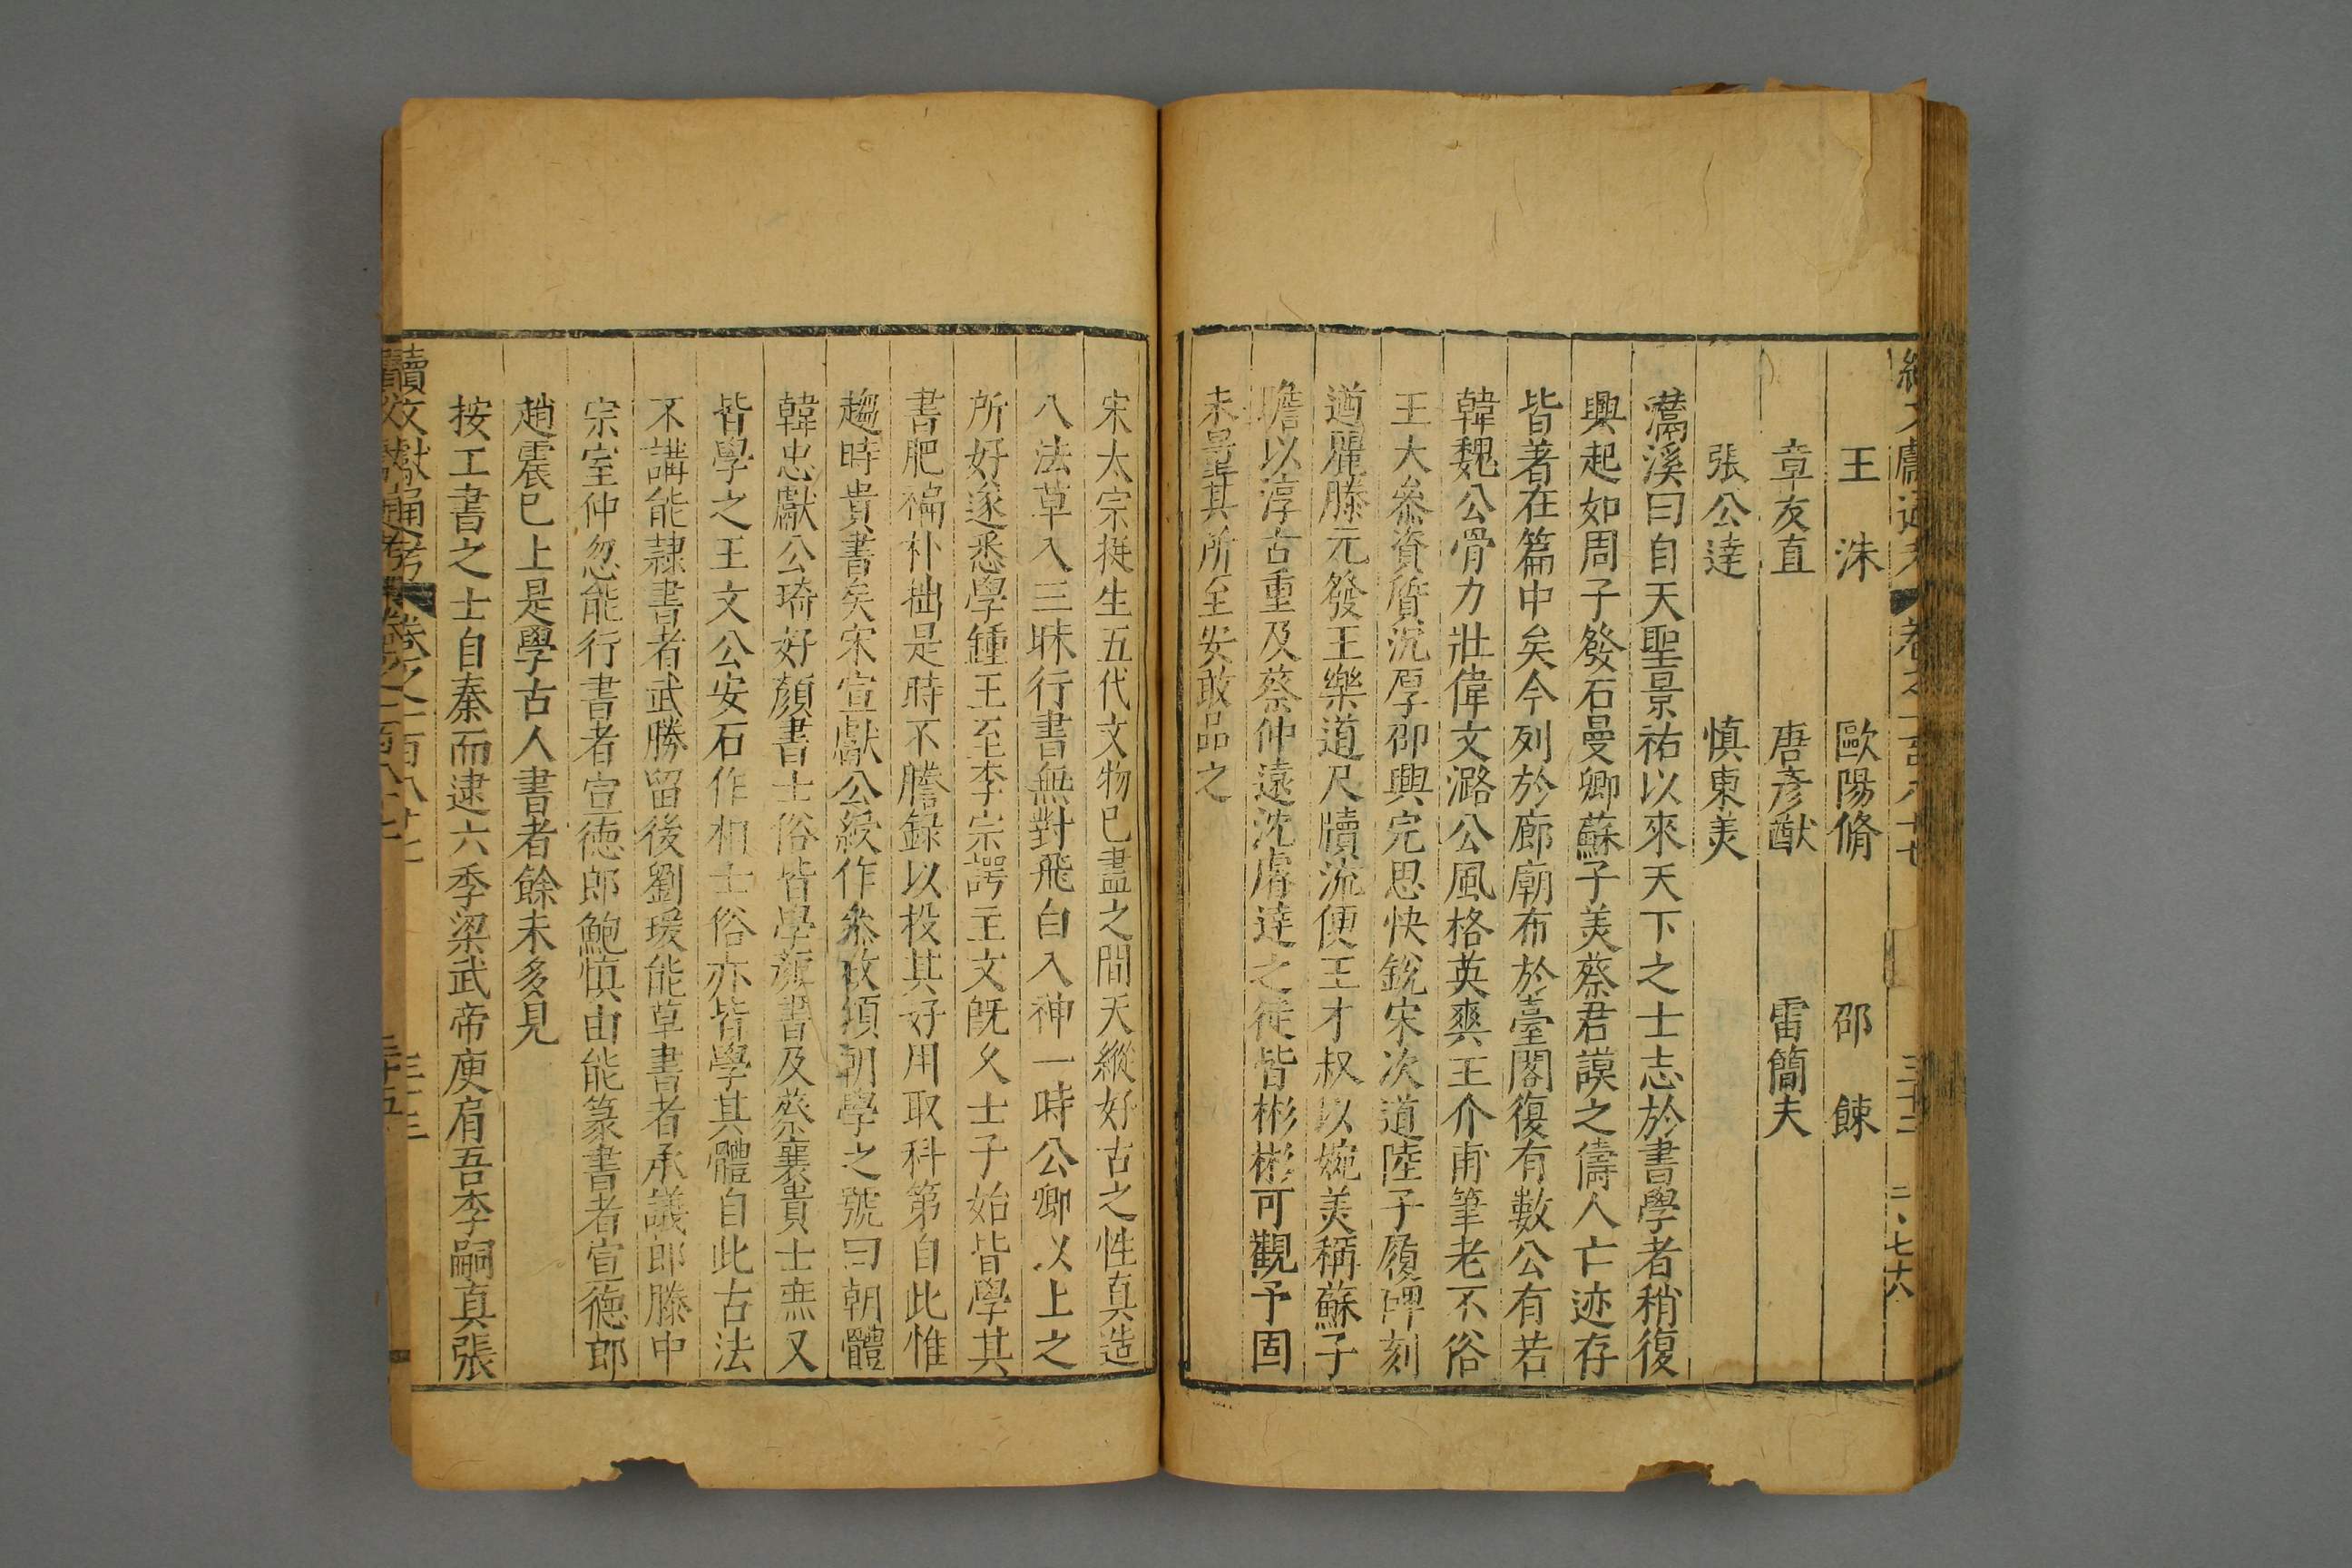 續文獻通考 卷之一百八十七 三十二 二、七十八
王洙 歐陽脩 邵餗
章友直 唐彥猷 雷簡夫
張公達 慎東美
灊溪曰自天聖景祐以來天下之士志於書學者稍復
興起如周子發石曼卿蘇子美蔡君謨之儔人亡迹存
皆著在篇中矣今列於廊廟布於臺閣復有數公有若
韓魏公骨力壯偉文潞公風格英爽王介甫筆老不俗
王大叅資質沉厚邵興完思快銳宋次道陸子履碑刻
遒麗滕元發王樂道尺牘流便王才叔以婉美稱蘇子
瞻以淳古重及蔡仲遠沈睿達之徒皆彬彬可觀予固
未畢其所至安敢品之
宋太宗挺生五代文物已盡之間天縱好古之性真造
八法草入三昧行書無對飛白入神一時公卿以上之
所好遂悉學鍾王至李宗諤主文既久士子始皆學其
書肥褊朴拙是時不謄錄以投其好用取科第自此惟
趨時貴書矣宋宣獻公綬作叅政傾朝學之號曰朝體
韓忠獻公琦好顏書士俗皆學顏書及蔡襄貴士庶又
皆學之王文公安石作相士俗亦皆學其體自此古法
不講能隷書者武勝留後劉瑗能草書者承議郎滕中
宗室仲忽能行書者宣德郎鮑慎由能篆書者宣德郎
趙震已上是學古人書者餘未多見
按工書之士自秦而逮六季梁武帝庾肩吾李嗣真張
續文獻通考 卷之一百八十七 三十三